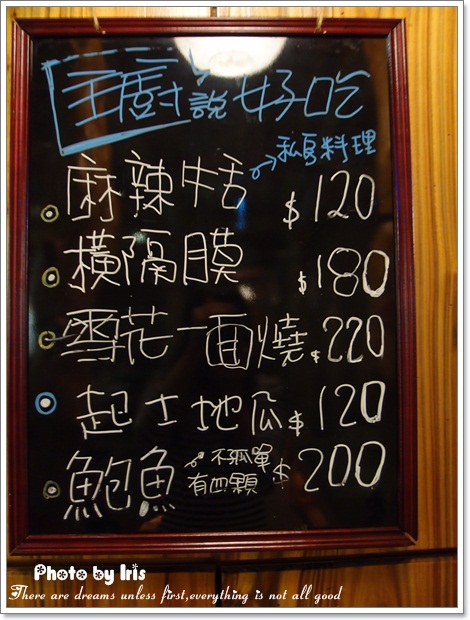 主廚說好吃
私房料理
麻辣牛舌 $120
橫隔膜 $180
雪花一面燒 $220
起士地瓜 $120
鮑魚 不孤單 有四顆 $200
Photo by Iris
There are dreams unless first,everything is not all good